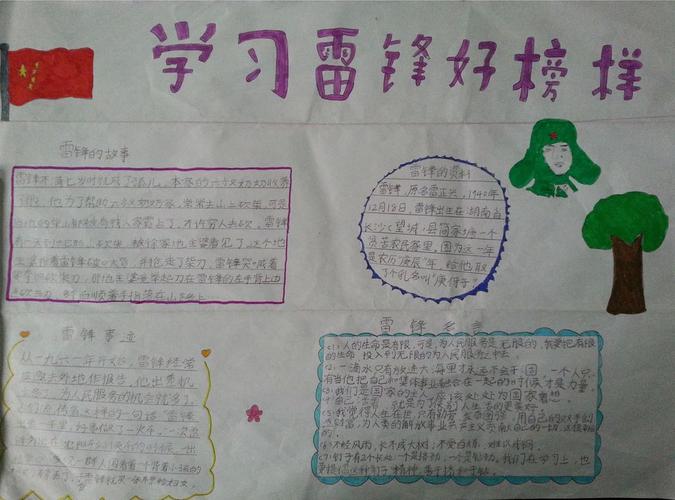 学习雷锋好榜样
雷锋的故事
雷锋不满七岁时就成了孤儿，本家的六叔奶奶收养
了他。他为了帮助六叔奶奶家，常常去山上砍柴，可是
当地的柴山都被有钱人家霸占了，不许穷人去砍。雷锋
有一天到山上砍柴，被徐家地主婆看见了。这个地
主婆指着雷锋破口大骂，并抢走了柴刀，雷锋哭喊着
雷锋的资料
雷锋，原名雷正兴，1940年
12月18日，雷锋出生在湖南省
长沙（望城）县简家塘一个
贫苦农民家里。因为这一年
是农历“庚辰”年，给他取
了个乳名叫“庚伢子”
雷锋事迹
从一九六一年开始，雷锋经常
应邀去外地作报告，他出差机
会多了，为人民服务的机会就多了，
人们流传着这样的一句话“雷锋
出差一千里，好事做了一火车。”一次雷
雷锋名言
人的生命是有限，可是，为人民服务是无限的，我要把有限
的生命，投入到无限的为人民服务之中去。
一滴水只有放进大海里才永远不会干涸，一个人只
有当他把自己和集体事业融合在一起的时候才最有力量。
我们是国家的主人，应该处处为国家着想。
不经风雨，长不成大树，不受百炼，难以成钢。
钉子有2个长处：一个是挤劲，一个是钻劲。我们在学习上，也
要提倡这种钉子精神，善于挤和于钻。